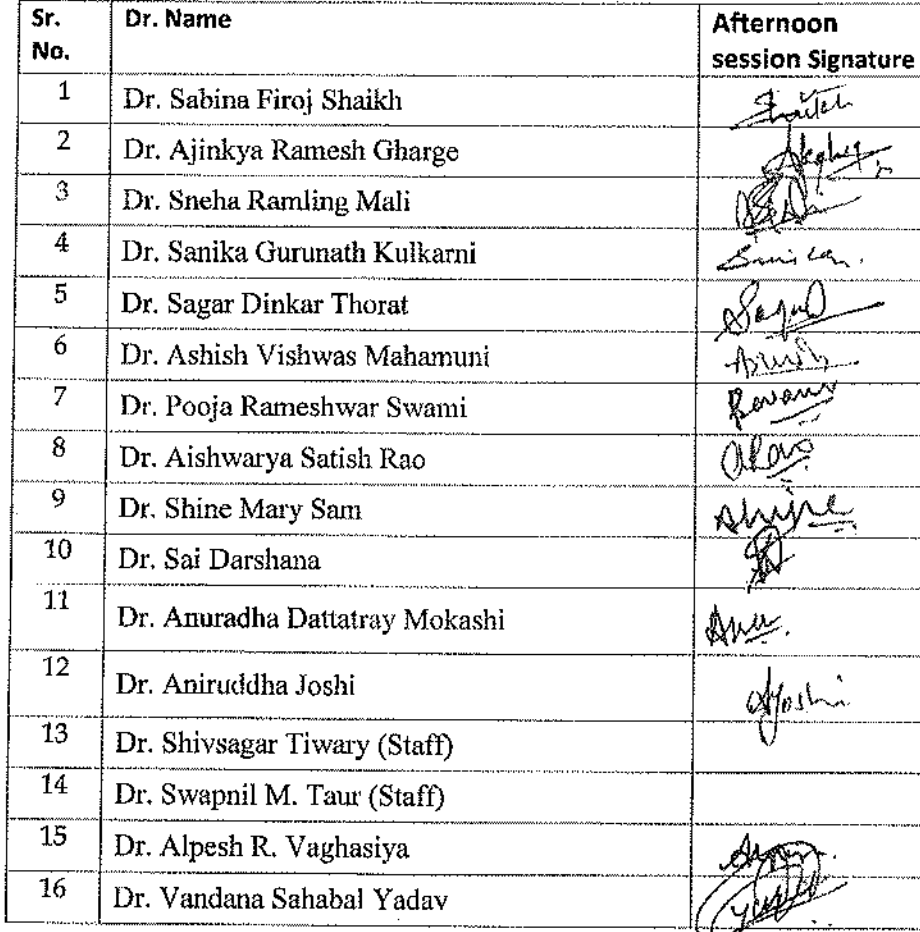 Sr. No. Dr. Name Afternoon session Signature
1 Dr. Sabina Firoj Shaikh Shaikh
2 Dr. Ajinkya Ramesh Gharge
3 Dr. Sneha Ramling Mali
4 Dr. Sanika Gurunath Kulkarni
5 Dr. Sagar Dinkar Thorat
6 Dr. Ashish Vishwas Mahamuni
7 Dr. Pooja Rameshwar Swami
8 Dr. Aishwarya Satish Rao ARao
9 Dr. Shine Mary Sam Shine
10 Dr. Sai Darshana
11 Dr. Anuradha Dattatray Mokashi Anu.
12 Dr. Aniruddha Joshi AJoshi
13 Dr. Shivsagar Tiwary (Staff)
14 Dr. Swapnil M. Taur (Staff)
15 Dr. Alpesh R. Vaghasiya
16 Dr. Vandana Sahabal Yadav